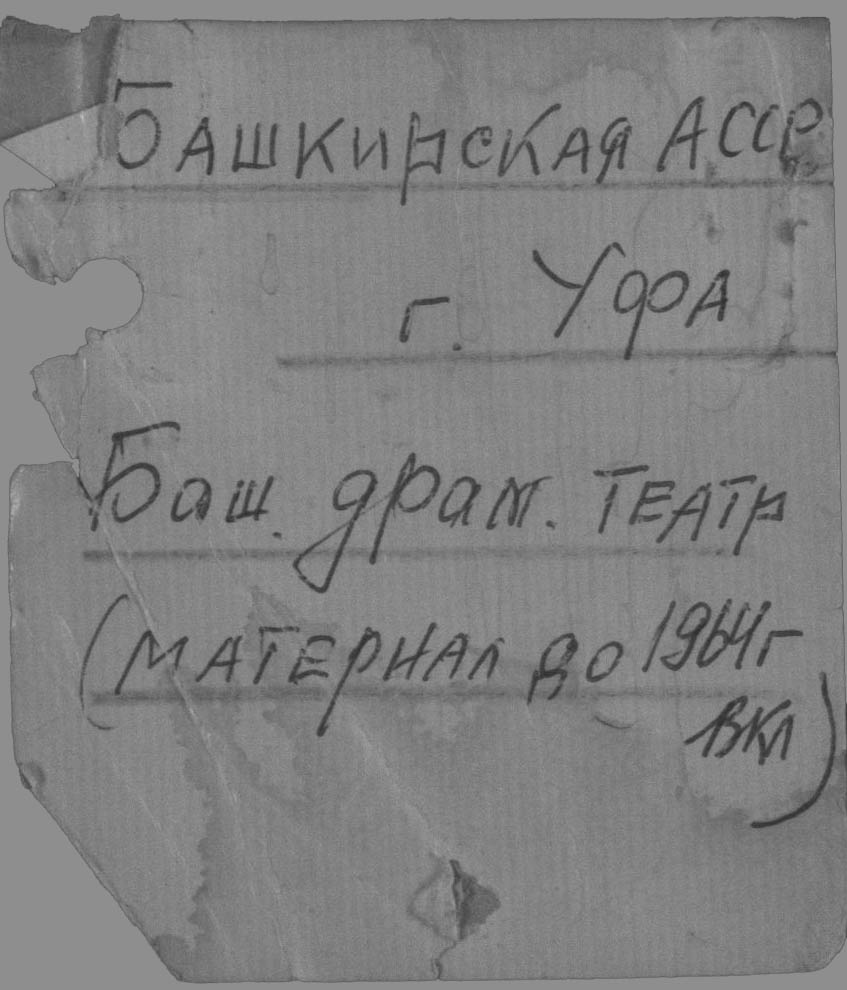 Башкирская АССР
г. Уфа
Баш. драм. театр
(материал до 1964г
вкл)